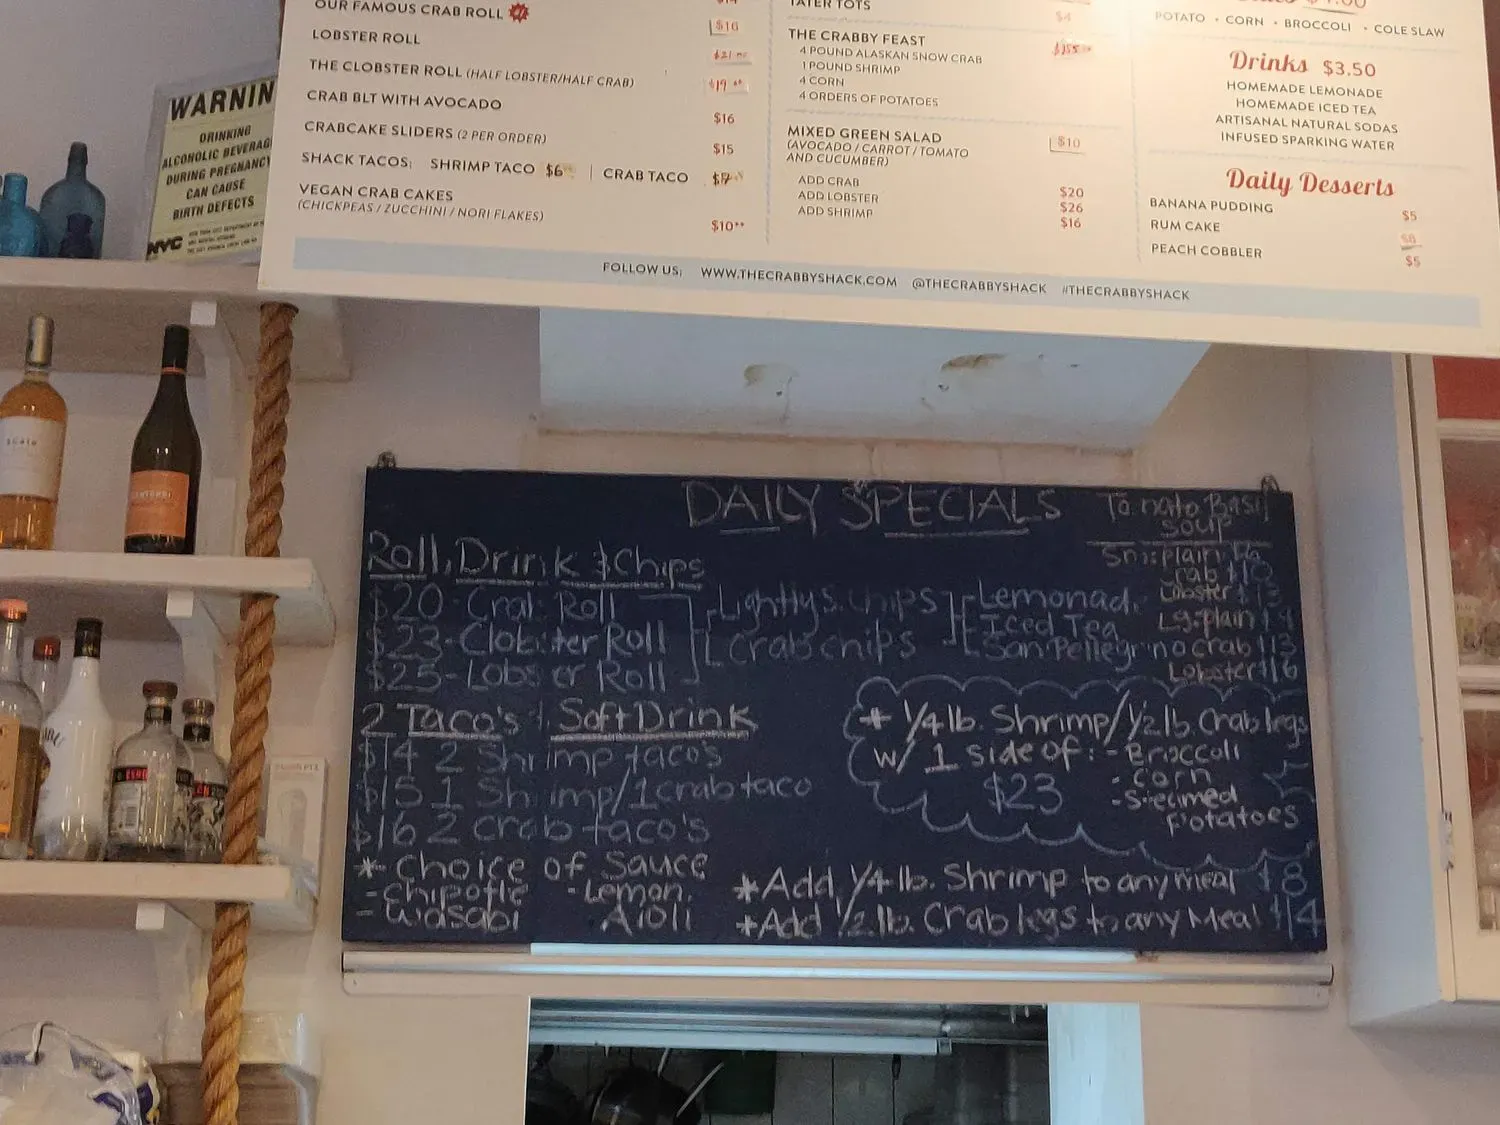 OUR FAMOUS CRAB ROLL
$16
LOBSTER ROLL
THE CLOBSTER ROLL (HALF LOBSTER/HALF CRAB)
CRAB BLT WITH AVOCADO
$16
CRABCAKE SLIDERS (2 PER ORDER)
$15
SHACK TACOS: SHRIMP TACO $6 | CRAB TACO
VEGAN CRAB CAKES
(CHICKPEAS / ZUCCHINI / NORI FLAKES)
$10
TATER TOTS
$4
THE CRABBY FEAST
4 POUND ALASKAN SNOW CRAB
1 POUND SHRIMP
4 CORN
4 ORDERS OF POTATOES
MIXED GREEN SALAD $10
(AVOCADO / CARROT / TOMATO
AND CUCUMBER)
ADD CRAB $20
ADD LOBSTER $26
ADD SHRIMP $16
POTATO • CORN • BROCCOLI • COLE SLAW
Drinks $3.50
HOMEMADE LEMONADE
HOMEMADE ICED TEA
ARTISANAL NATURAL SODAS
INFUSED SPARKING WATER
Daily Desserts
BANANA PUDDING $5
RUM CAKE
PEACH COBBLER $5
FOLLOW US: WWW.THECRABBYSHACK.COM @THECRABBYSHACK #THECRABBYSHACK
WARNIN
DRINKING
ALCOHOLIC BEVERAG
DURING PREGNANCY
CAN CAUSE
BIRTH DEFECTS
NYC
DAILY SPECIALS
Roll, Drink & Chips
$20 - Crab Roll
$23 - Clobster Roll
$25 - Lobster Roll
Lightly S. Chips
Crab chips
Lemonad.
Iced Tea
San Pellegrino
Tomato Basil
Soup
Sm: plain
Crab $10
Lobster
Lg: plain
crab $13
Lobster $16
2 Taco's & Soft Drink
$14 2 Shrimp taco's
$15 1 Shrimp/1 crab taco
$16 2 crab taco's
* Choice of Sauce
- Chipotle - Lemon
- Wasabi Aioli
* 1/4 lb. Shrimp/1/2 lb. Crab legs
w/ 1 side of: - Broccoli
- Corn
$23 - Steamed
Potatoes
* Add 1/4 lb. Shrimp to any meal $8
* Add 1/2 lb. Crab legs to any Meal $14